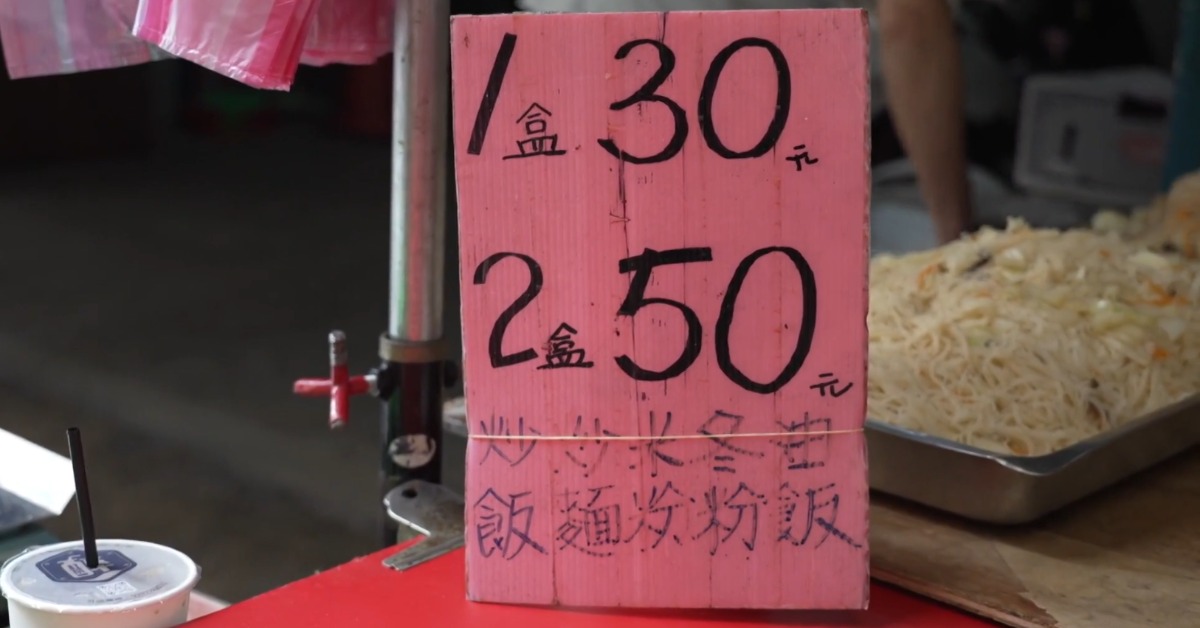 1盒30元
2盒50元
炒飯
炒麵
米粉
冬粉
油飯